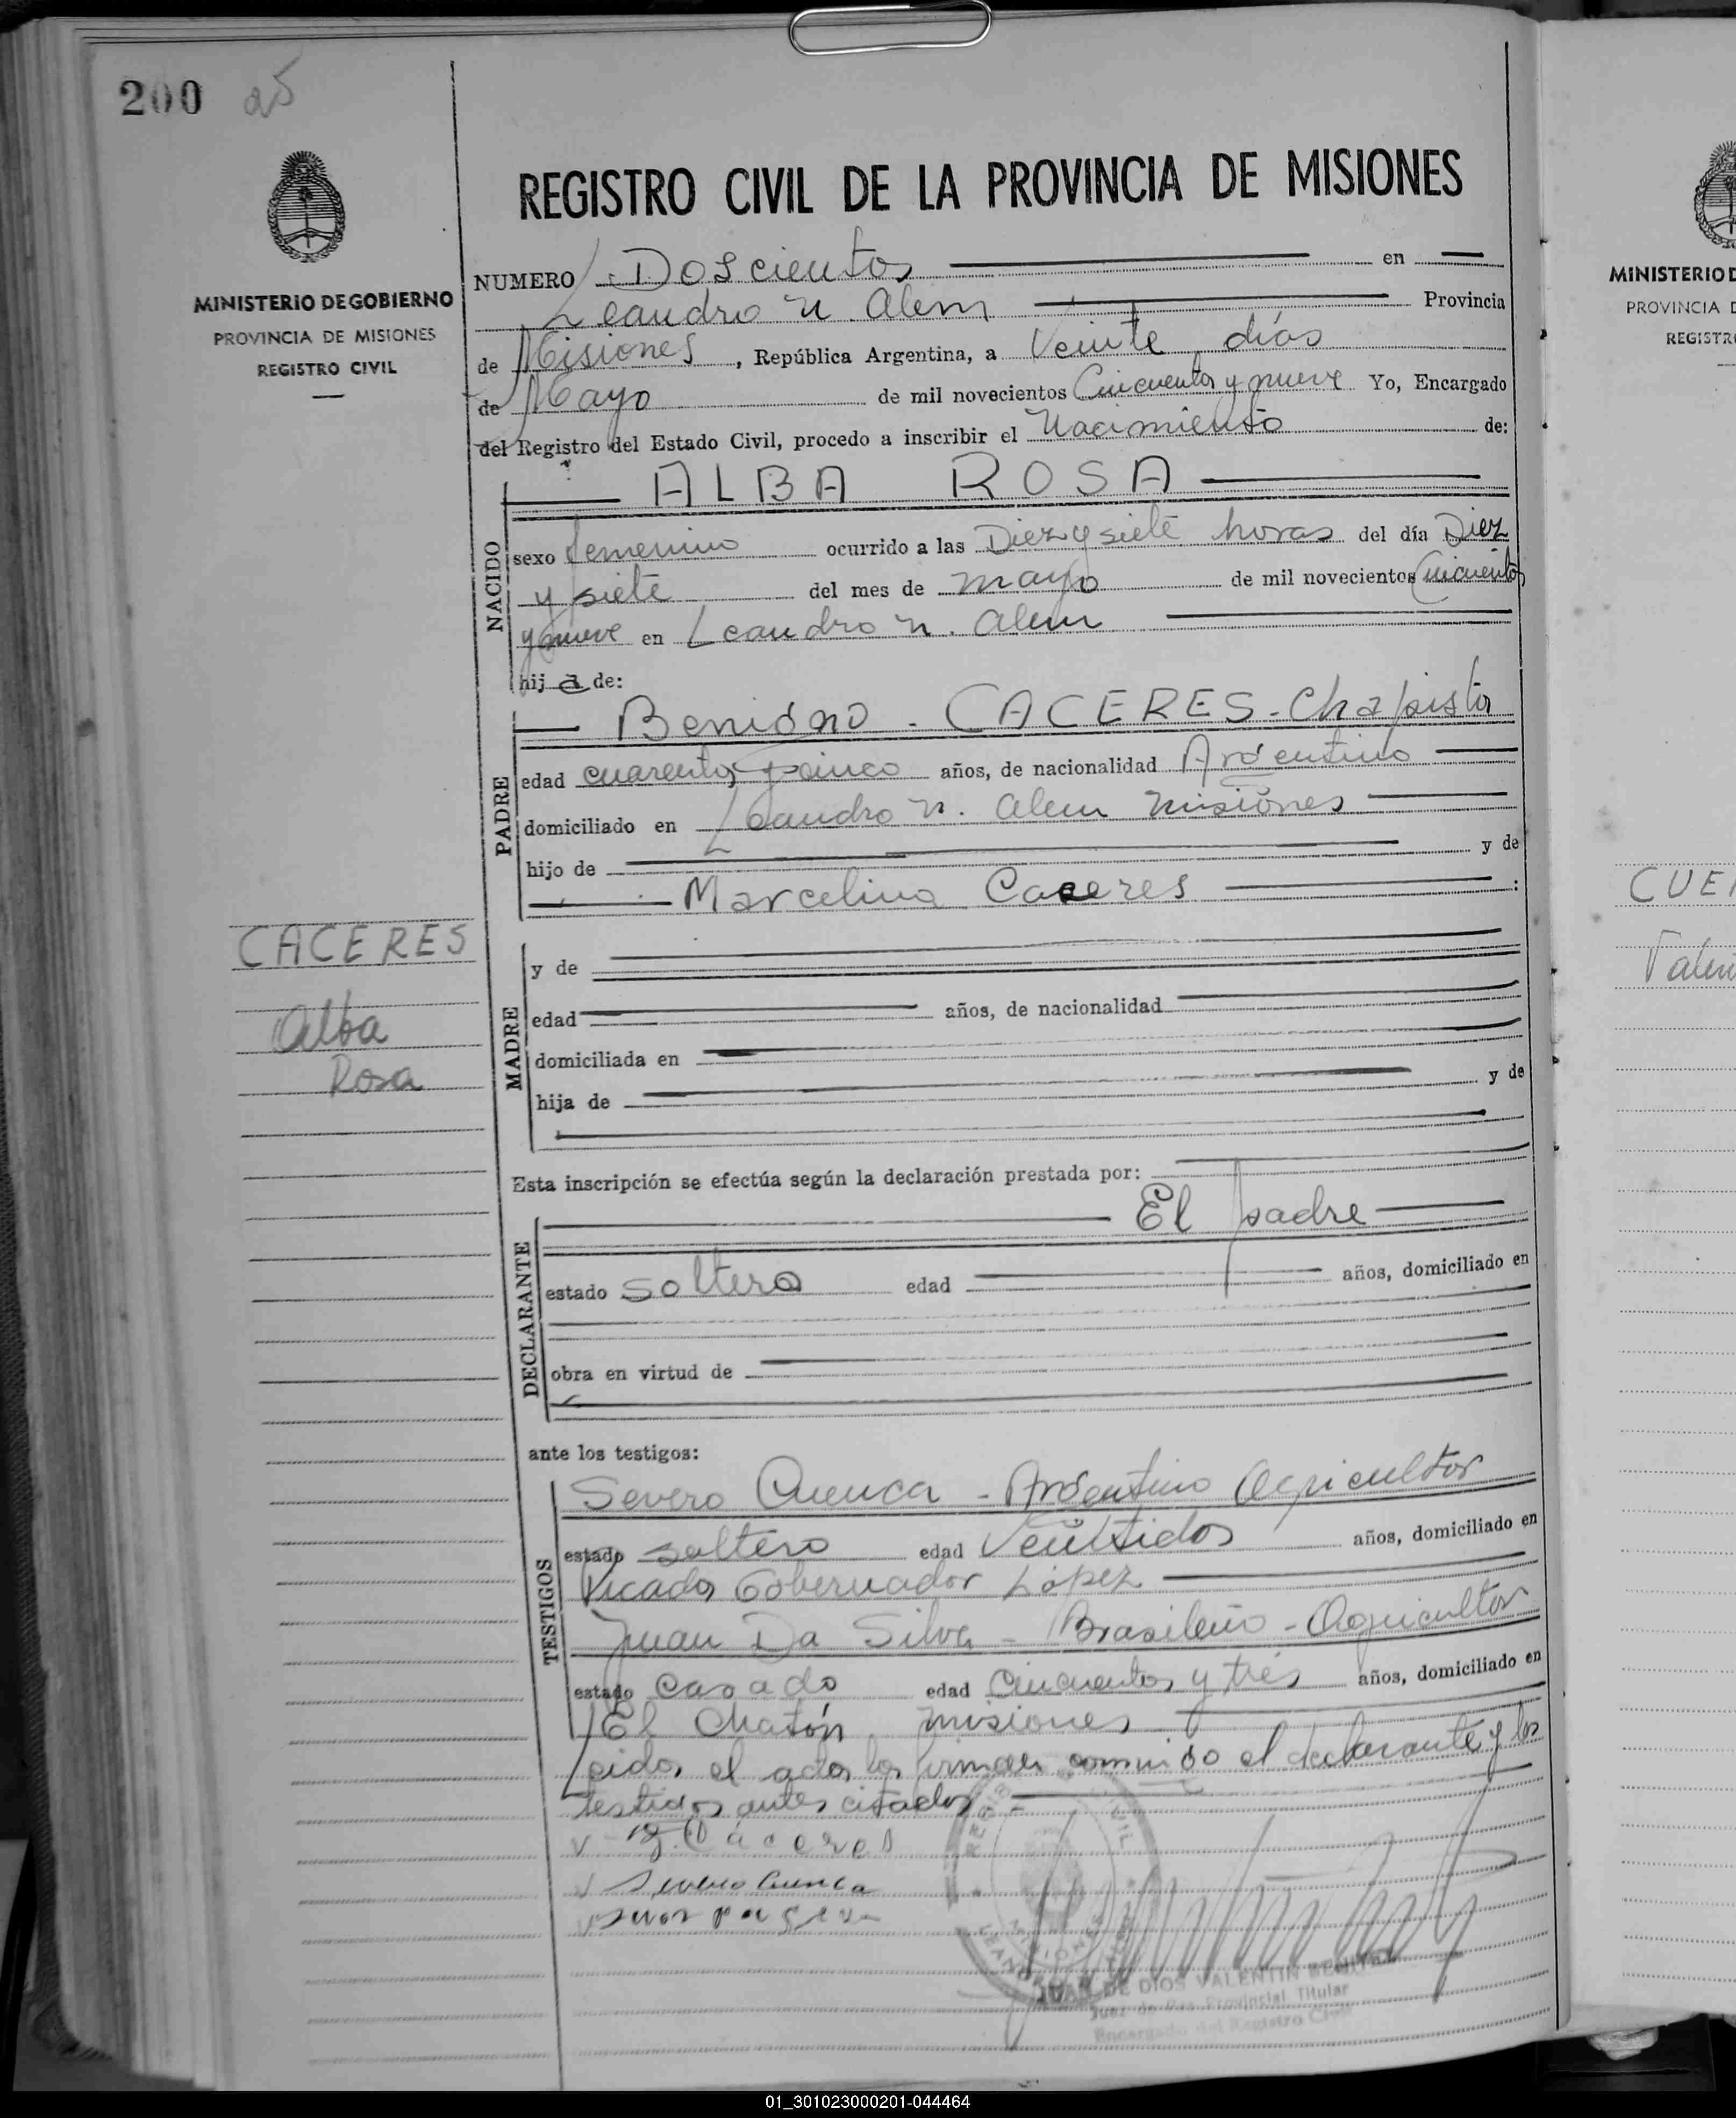 200 25
MINISTERIO DE GOBIERNO
PROVINCIA DE MISIONES
REGISTRO CIVIL
REGISTRO CIVIL DE LA PROVINCIA DE MISIONES
NUMERO Doscientos en
Leandro N. Alem Provincia
de Misiones, República Argentina, a Veinte días
de Mayo de mil novecientos Cincuenta y nueve Yo, Encargado
del Registro del Estado Civil, procedo a inscribir el Nacimiento de:
ALBA ROSA
NACIDO
sexo femenino ocurrido a las Diez y siete horas del día Diez
y siete del mes de mayo de mil novecientos Cincuenta
y nueve en Leandro N. Alem
hij a de:
PADRE
Benigno - CACERES - Chapista
edad cuarenta y cinco años, de nacionalidad Argentino
domiciliado en Leandro N. Alem Misiones
hijo de y de
Marcelina Caceres :
CACERES
Alba
Rosa
MADRE
y de
edad años, de nacionalidad
domiciliada en
hija de y de
Esta inscripción se efectúa según la declaración prestada por:
El padre
DECLARANTE
estado soltero edad años, domiciliado en
obra en virtud de
ante los testigos:
TESTIGOS
Severo Cuenca - Argentino Agricultor
estado soltero edad Veintidos años, domiciliado en
Picada Gobernador López
Juan Da Silva - Brasileño - Agricultor
estado casado edad Cincuenta y tres años, domiciliado en
El Chatón misiones
Leida el acta la firman conmigo el declarante y los
testigos antes citados. =
B. Cáceres
Severo Cuenca
REGISTRO CIVIL
MISIONES
LEANDRO
JUAN DE DIOS VALENTIN BENITEZ
Juez de Paz Provincial Titular
Encargado del Registro Civil
MINISTERIO D
PROVINCIA D
REGISTR
CUE
Valen
01_301023000201-044464